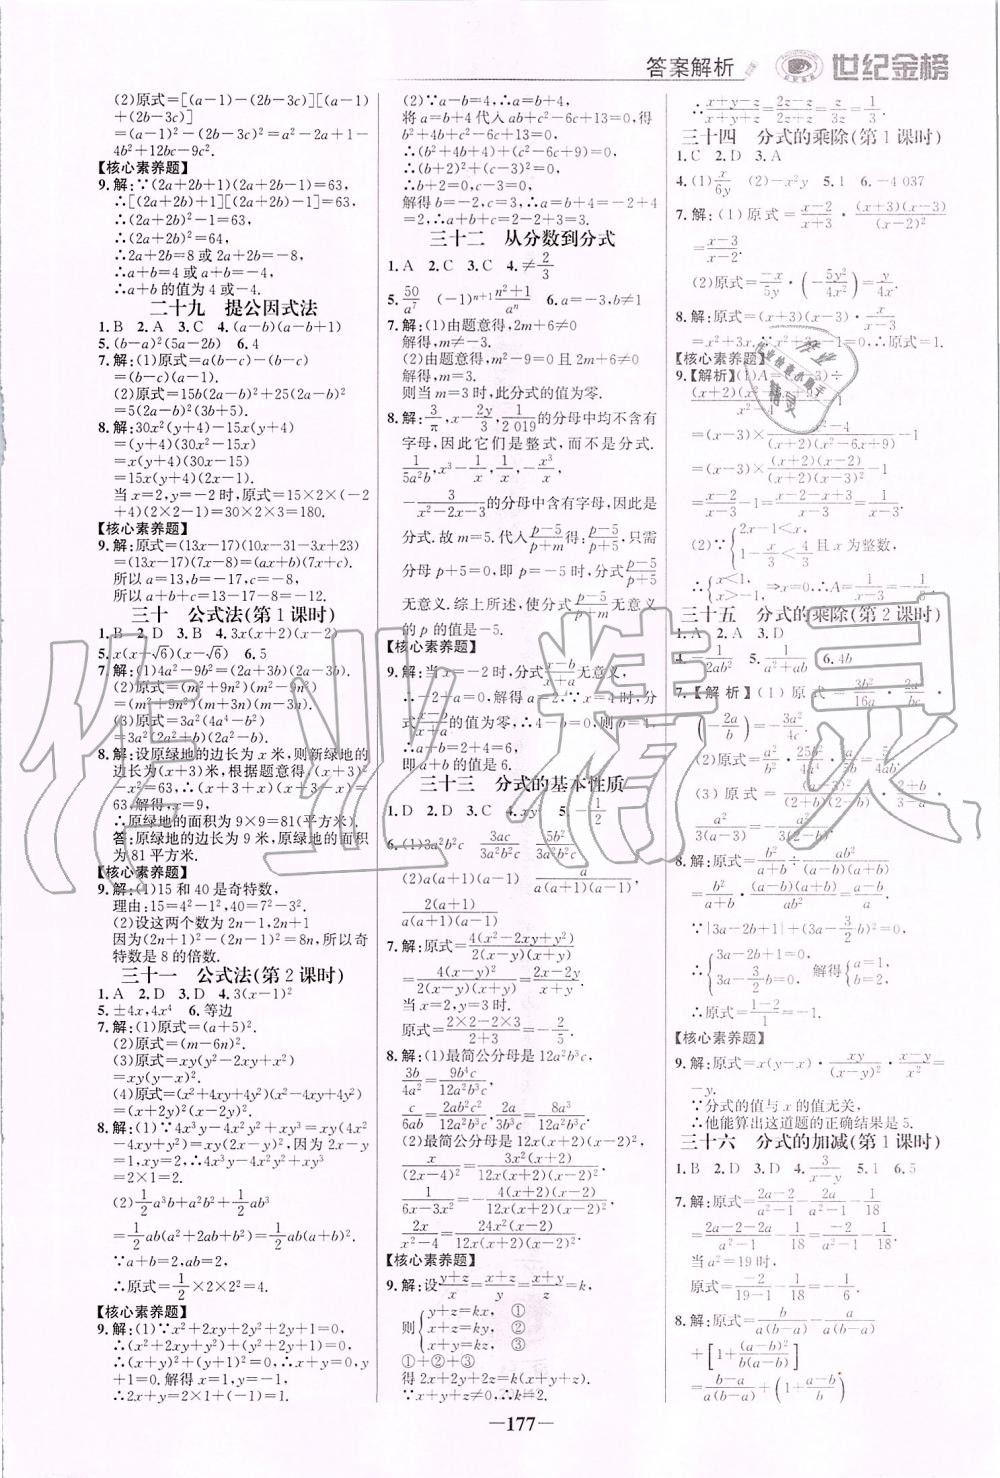 答案解析 世纪金榜
(2)原式=[(a-1)-(2b-3c)][(a-1)
+(2b-3c)]
=(a-1)²-(2b-3c)²=a²-2a+1-
4b²+12bc-9c².
【核心素养题】
9.解:∵(2a+2b+1)(2a+2b-1)=63,
∴[(2a+2b)+1][(2a+2b)-1]=63,
∴(2a+2b)²-1=63,
∴(2a+2b)²=64,
∴2a+2b=8或2a+2b=-8,
∴a+b=4或a+b=-4,
∴a+b的值为4或-4.
二十九 提公因式法
1.B 2.A 3.C 4.(a-b)(a-b+1)
5.(b-a)²(5a-2b) 6.4
7.解:(1)原式=a(b-c)-(b-c)
=(b-c)(a-1).
(2)原式=15b(2a-b)²+25(2a-b)²
=5(2a-b)²(3b+5).
8.解:30x²(y+4)-15x(y+4)
=(y+4)(30x²-15x)
=x(y+4)(30x-15)
=15x(y+4)(2x-1).
当x=2,y=-2时,原式=15×2×(-2
+4)(2×2-1)=30×2×3=180.
【核心素养题】
9.解:原式=(13x-17)(10x-31-3x+23)
=(13x-17)(7x-8)
=(13x-17)(7x-8)=(ax+b)(7x+c).
所以a=13,b=-17,c=-8,
所以a+b+c=13-17-8=-12.
三十 公式法(第1课时)
1.B 2.D 3.B 4.3x(x+2)(x-2)
5.x(x+√6)(x-√6) 6.5
7.解:(1)4a²-9b²=(2a+3b)(2a-3b).
(2)原式=(m²+9n²)(m²-9n²)
=(m²+9n²)(m+3n)(m-3n).
(3)原式=3a²(4a²-b²)=
3a²(2a+b)(2a-b).
8.解:设原绿地的边长为x米,则新绿地的
边长为(x+3)米,根据题意得,(x+3)²
-x²=63,∴(x+3+x)(x+3-x)=
63,解得,x=9,
∴原绿地的面积为9×9=81(平方米).
答:原绿地的边长为9米,原绿地的面积
为81平方米.
【核心素养题】
9.解:(1)15和40是奇特数,
理由:15=4²-1²,40=7²-3².
(2)设这两个数为2n-1,2n+1
因为(2n+1)²-(2n-1)²=8n,所以奇
特数是8的倍数.
三十一 公式法(第2课时)
1.A 2.D 3.D 4.3(x-1)²
5.±4x,4x⁴ 6.等边
7.解:(1)原式=(a+5)².
(2)原式=(m-6n)².
(3)原式=xy(y²-2xy+x²)
=xy(y-x)².
(4)原式=(x²+4xy+4y²)(x²-4xy+4y²)
=(x+2y)²(x-2y)².
8.解:(1)∵4x³y-4x²y²+xy³=xy(4x²
-4xy+y²)=xy(2x-y)²,因为2x-y
=1,xy=2,∴4x³y-4x²y²+xy³
=2×1=2.
(2)1/2a³b+a²b²+1/2ab³
=1/2ab(a²+2ab+b²)=1/2ab(a+b)².
∵a+b=2,ab=2,
∴原式=1/2×2×2²=4.
【核心素养题】
9.解:(1)∵x²+2xy+2y²+2y+1=0,
∴(x²+2xy+y²)+(y²+2y+1)=0,
∴(x+y)²+(y+1)²=0,∴x+y=0,
y+1=0.解得x=1,y=-1,
∴2x+y=2×1+(-1)=1.
(2)∵a-b=4,∴a=b+4,
将a=b+4代入ab+c²-6c+13=0,得
b²+4b+c²-6c+13=0,
∴(b²+4b+4)+(c²-6c+9)=0,
∴(b+2)²+(c-3)²=0,
∴b+2=0,c-3=0,
解得b=-2,c=3,∴a=b+4=-2+4
=2,∴a+b+c=2-2+3=3.
三十二 从分数到分式
1.A 2.C 3.C 4.≠2/3
5.50/a⁷ (-1)ⁿ⁺¹(n²+1)/aⁿ 6.a=-3,b≠1
7.解:(1)由题意得,2m+6≠0
解得,m≠-3.
(2)由题意得,m²-9=0且2m+6≠0
解得,m=3.
则当m=3时,此分式的值为零.
8.解:3/π,x-2y/3,1/2019的分母中均不含有
字母,因此它们是整式,而不是分式.
1/5a²b,x³-1/x,-x³/x,
-3/(x²-2x-3)的分母中含有字母,因此是
分式.故m=5.代入(p-5)/(p+m)得:(p-5)/(p+5),当
分母p+5=0,即p=-5时,分式(p-5)/(p+5)
无意义.综上所述,使分式(p-5)/(p+m)无意义
的p的值是-5.
【核心素养题】
9.解:当x=-2时,分式(x-b)/(x+a)无意义,
∴-2+a=0,解得a=2.∵x=4时,分
式(x-b)/(x+a)的值为零,∴4-b=0,则b=4,
∴a+b=2+4=6,
即a+b的值是6.
三十三 分式的基本性质
1.D 2.D 3.C 4.xy 5.-1/2
6.(1)3a²b²c 3ac/3a²b²c 5b²/3a²b²c
(2)a(a+1)(a-1) a/a(a+1)(a-1)
2(a+1)/a(a+1)(a-1)
7.解:原式=4(x²-2xy+y²)/2(x-y)(x+y)
=4(x-y)²/2(x-y)(x+y)=(2x-2y)/(x+y).
当x=2,y=3时.
原式=(2×2-2×3)/(2+3)=-2/5.
8.解:(1)最简公分母是12a²b³c,
3b/4a²=9b⁴c/12a²b³c,
c/6ab=2ab²c²/12a²b³c,2a/3b³c=8a³/12a²b³c.
(2)最简公分母是12x(x+2)(x-2),
x/(2x-4)=3x²(x+2)/12x(x+2)(x-2),
1/(6x-3x²)=-4(x+2)/12x(x+2)(x-2),
2x/(x²-4)=24x²/12x(x+2)(x-2).
【核心素养题】
9.解:设(y+z)/x=(x+z)/y=(x+y)/z=k,
则{y+z=kx, ①
x+z=ky, ②
x+y=kz, ③
①+②+③
得2x+2y+2z=k(x+y+z),
∵x+y+z≠0,∴k=2.
∴(x+y-z)/(x+y+z)=(2z-z)/(2z+z)=z/3z=1/3.
三十四 分式的乘除(第1课时)
1.C 2.D 3.A
4.(1)x/6y (2)-x²y 5.1 6.-4 037
7.解:(1)原式=(x-2)/(x+3)·(x+3)(x-3)/(x-2)²=
(x-3)/(x-2).
(2)原式=-x/5y·(-5y²/4x²)=y/4x.
8.解:原式=(x+3)(x-3)·x/(x-3)
=x²+3x.∵x²+3x-1=0,∴原式=1.
【核心素养题】
-1
=(x-3)×(x+2)(x-2)/(x+2)(x²-6x+9)-1
=(x-3)×(x+2)(x-2)/(x+2)(x-3)²-1
=(x-2)/(x-3)-1=(x-2-x+3)/(x-3)=1/(x-3).
(2)∵{2x-1<x,
1-x/3<4/3 且x为整数,
三十五 分式的乘除(第2课时)
1.A 2.A 3.D
4.1/2ab² 5.1/(a²+ab) 6.4b
7.【解析】(1)原式=3b²/16a·2a²/bc·
(-2a/b)=-3a²/4c.
a²/3(a-3)
∵|3a-2b+1|+(3a-3/2b)²=0,
∴{3a-2b+1=0,
3a-3/2b=0, 解得{
∴原式=(1-2)/1=-1.
【核心素养题】
9.解:原式=x(y-x)·xy/(x-y)·1/x²=
-y.
∵分式的值与x的值无关,
∴他能算出这道题的正确结果是5.
三十六 分式的加减(第1课时)
1.B 2.D 3.D 4.3/(x-y) 5.1 6.5
7.解:原式=(2a-2)/(a²-1)-2a/(a²-1)-1/18
=(2a-2-2a)/(a²-1)-1/18=-2/(a²-1)-1/18.
当a²=19时,
原式=-2/(19-1)-1/18=-1/6.
8.解:原式=b/a(b-a)-a/a(b-a)
+[1+(a-b)²/b(a-b)]
=(b-a)/a(b-a)+1+(a-b)/b
—177—
作业精灵